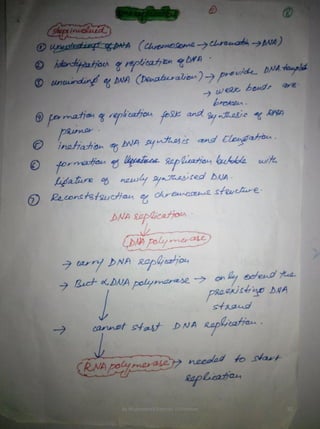 ②
Steps involved
① unwinding of DNA (Chromosome → Chromatin → DNA)
② Identification of replication of DNA.
③ unwinding of DNA (Denaturation) → provide DNA template
→ weak bonds are
broken.
④ formation of replication fork and synthesis of RNA
primer.
⑤ initiation of DNA synthesis and Elongation.
⑥ formation of replication bubble with
ligature of newly synthesised DNA.
⑦ Reconstruction of chromosome structure.
DNA Replication
DNA polymerase
→ carry DNA Replication
→ But α DNA polymerase → only extend the
preexisting DNA
strand.
→ cannot start DNA Replication.
RNA polymerase → needed to start
Replication